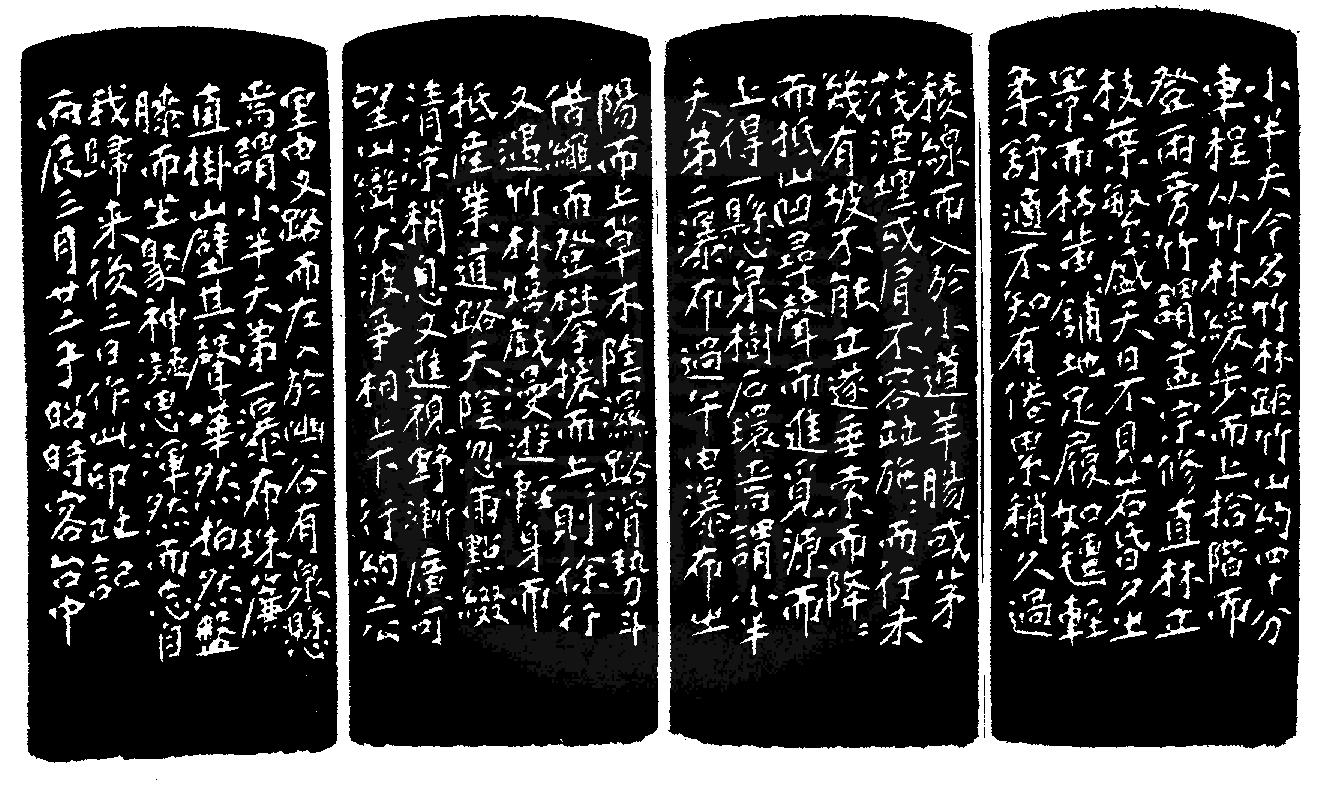 小半天今名竹林距竹山約四十分
車程从竹林緩步而上拾階而
登兩旁竹謂孟宗修直林立
枝葉繁盛天日不見岩昏夕坐
景而枯葉舖地足履如氊輕
柔舒適不知有倦累稍久過
稜線而入於小道羊腸或茅
茂湮埋或肩不容並施而行未
幾有坡不能立遂垂索而降
而抵山凹尋聲而進覓源而
上得一懸泉樹石環崇謂小半
天第二瀑布過午由瀑布出
陽而上草木陰濕路滑勢斗
借繩而登攀援而上則徐行
又過竹林嬉戲漫遊轉身而
抵產業道路天陰忽雨點綴
清涼稍息又進視野漸廣可
望山巒伏波爭相上下行約六
里由叉路而左入於幽谷有泉懸
焉謂小半天第一瀑布珠簾
直掛山壁其聲嘩然拍然盤
膝而坐聚神凝思渾然而忘自
我歸來後三日作山印並記
丙辰三月廿二乎昭時客台中